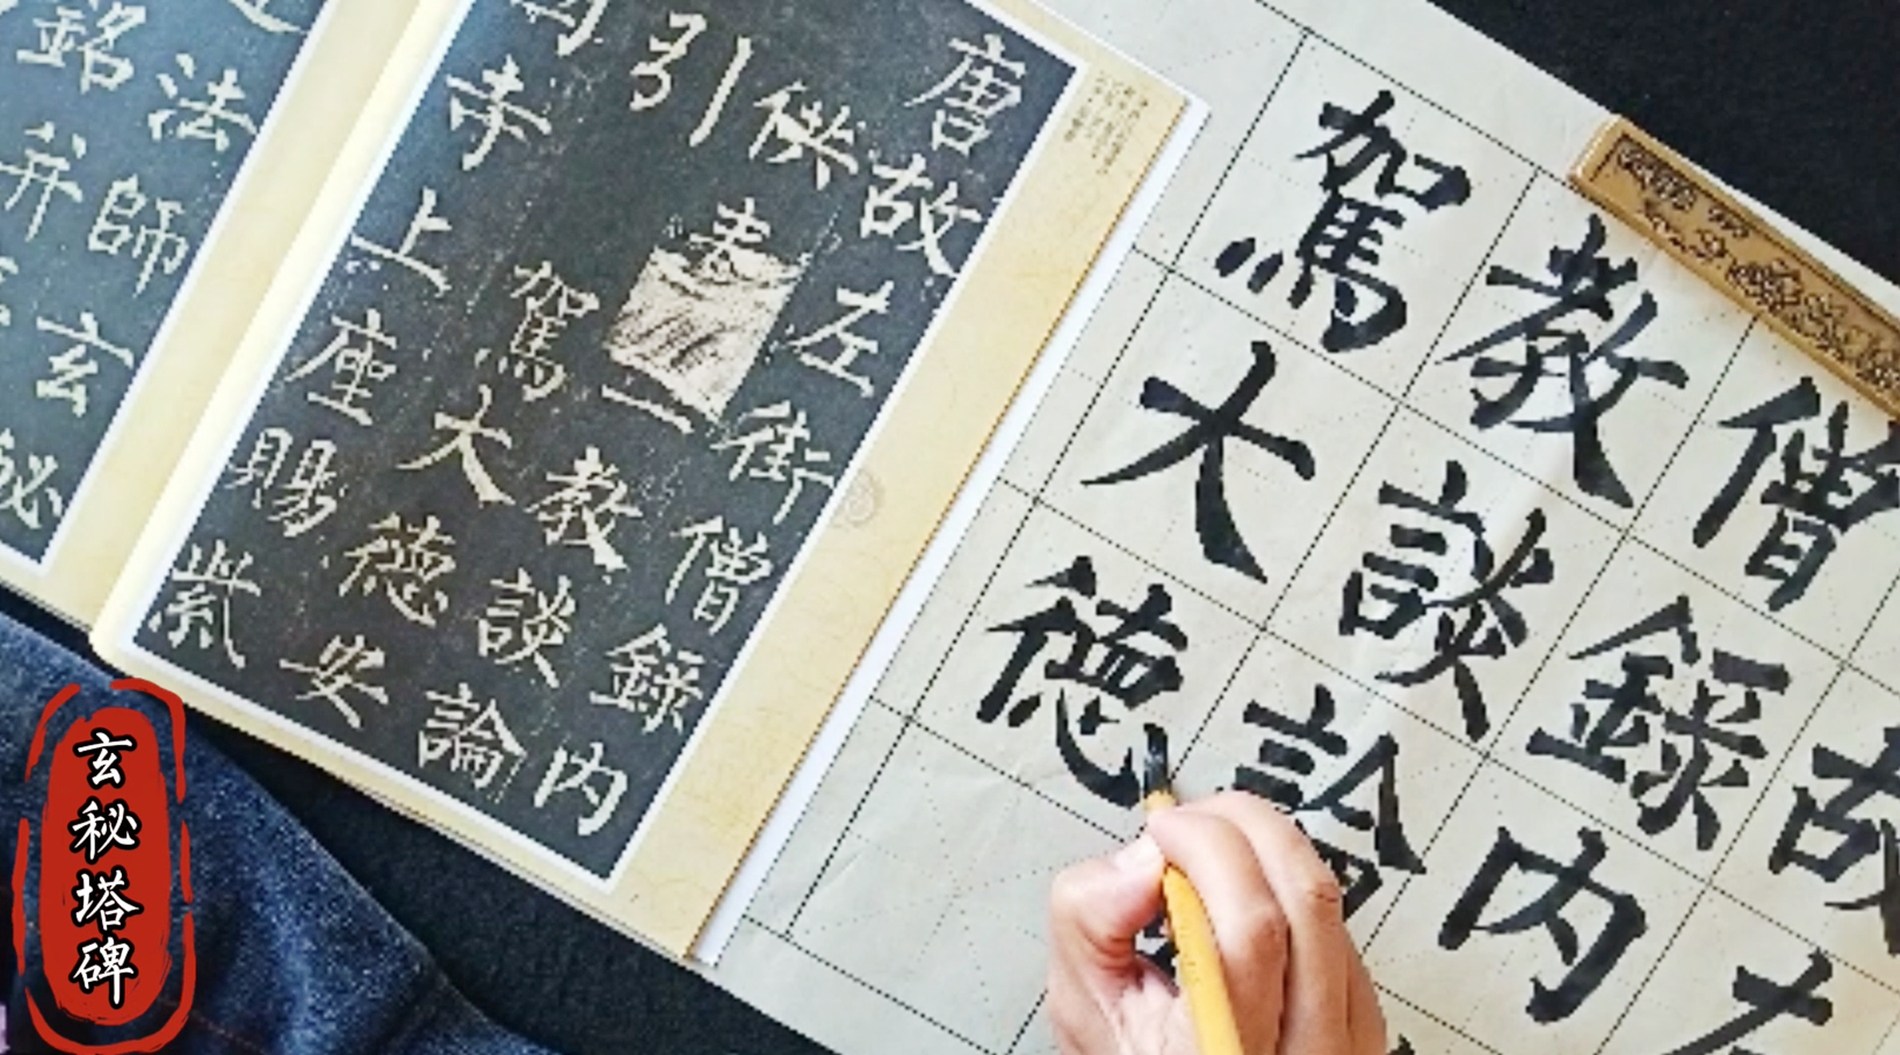 唐故左街僧錄內
供奉三教談論
引駕大德安
寺上座賜紫
法師玄秘
銘并
故左
僧錄內
教談論
駕大德
玄秘塔碑